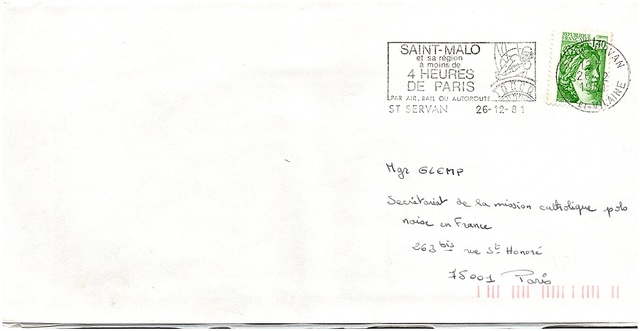 SAINT-MALO
et sa région
à moins de
4 HEURES
DE PARIS
PAR AIR, RAIL OU AUTOROUTE
ST SERVAN 26-12-81
REPUBLIQUE
FRANÇAISE
SERVAN
ET-VILAINE
Mgr GLEMP
Secrétariat de la mission catholique polo
naise en France
263 bis rue St Honoré
75001 Paris